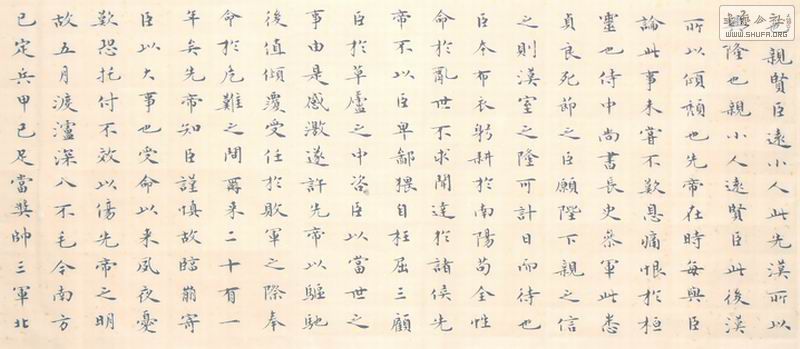 親賢臣遠小人此先漢所以
隆也親小人遠賢臣此後漢
所以傾頹也先帝在時每與臣
論此事未嘗不歎息痛恨於桓
靈也侍中尚書長史參軍此悉
貞良死節之臣願陛下親之信
之則漢室之隆可計日而待也
臣本布衣躬耕於南陽苟全性
命於亂世不求聞達於諸侯先
帝不以臣卑鄙猥自枉屈三顧
臣於草廬之中咨臣以當世之
事由是感激遂許先帝以驅馳
後值傾覆受任於敗軍之際奉
命於危難之間爾來二十有一
年矣先帝知臣謹慎故臨崩寄
臣以大事也受命以來夙夜憂
歎恐托付不效以傷先帝之明
故五月渡瀘深入不毛今南方
已定兵甲已足當獎帥三軍北
WWW.SHUFA.ORG